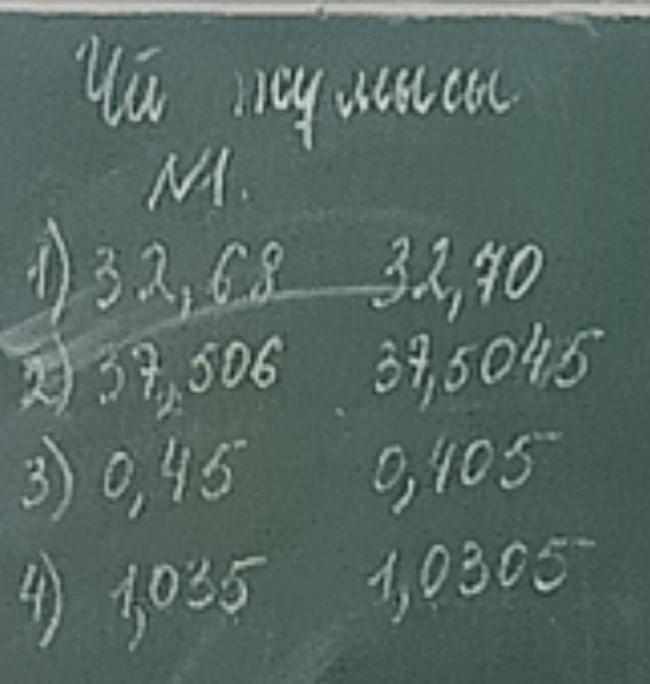 Үй жұмысы
№1.
1) 32,68 32,70
2) 37,506 37,5045
3) 0,45 0,405
4) 1,035 1,0305